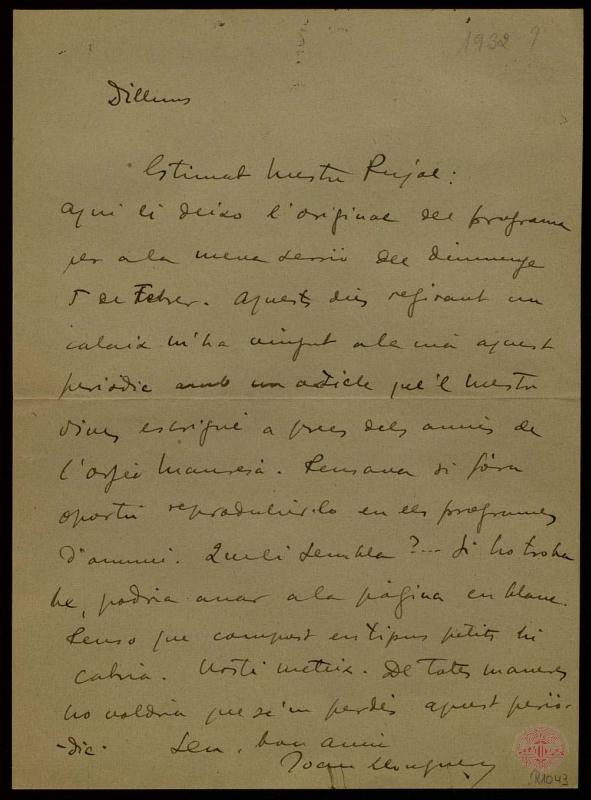 1932 ?
Dilluns
Estimat Mestre Pujol:
Aquí li deixo l'original del programa
per a la meva sessió del diumenge
5 de Febrer. Aquests dies regirant un
calaix m'ha vingut a la mà aquest
periòdic amb un article que'l mestre
Vives escrigué a prec dels amics de
l'orfeó Manresà. Pensava si fóra
oportú reproduhir-lo en els programes
d'avui. Què li sembla?... Si ho troba
bé, podria anar a la pàgina en blanc.
Penso que compost en tipus petits hi
cabria. Vosté mateix. De totes maneres
no voldria que se'm perdés aquest periò-
-dic. Seu, bon amic
Joan Llongueres
M1043